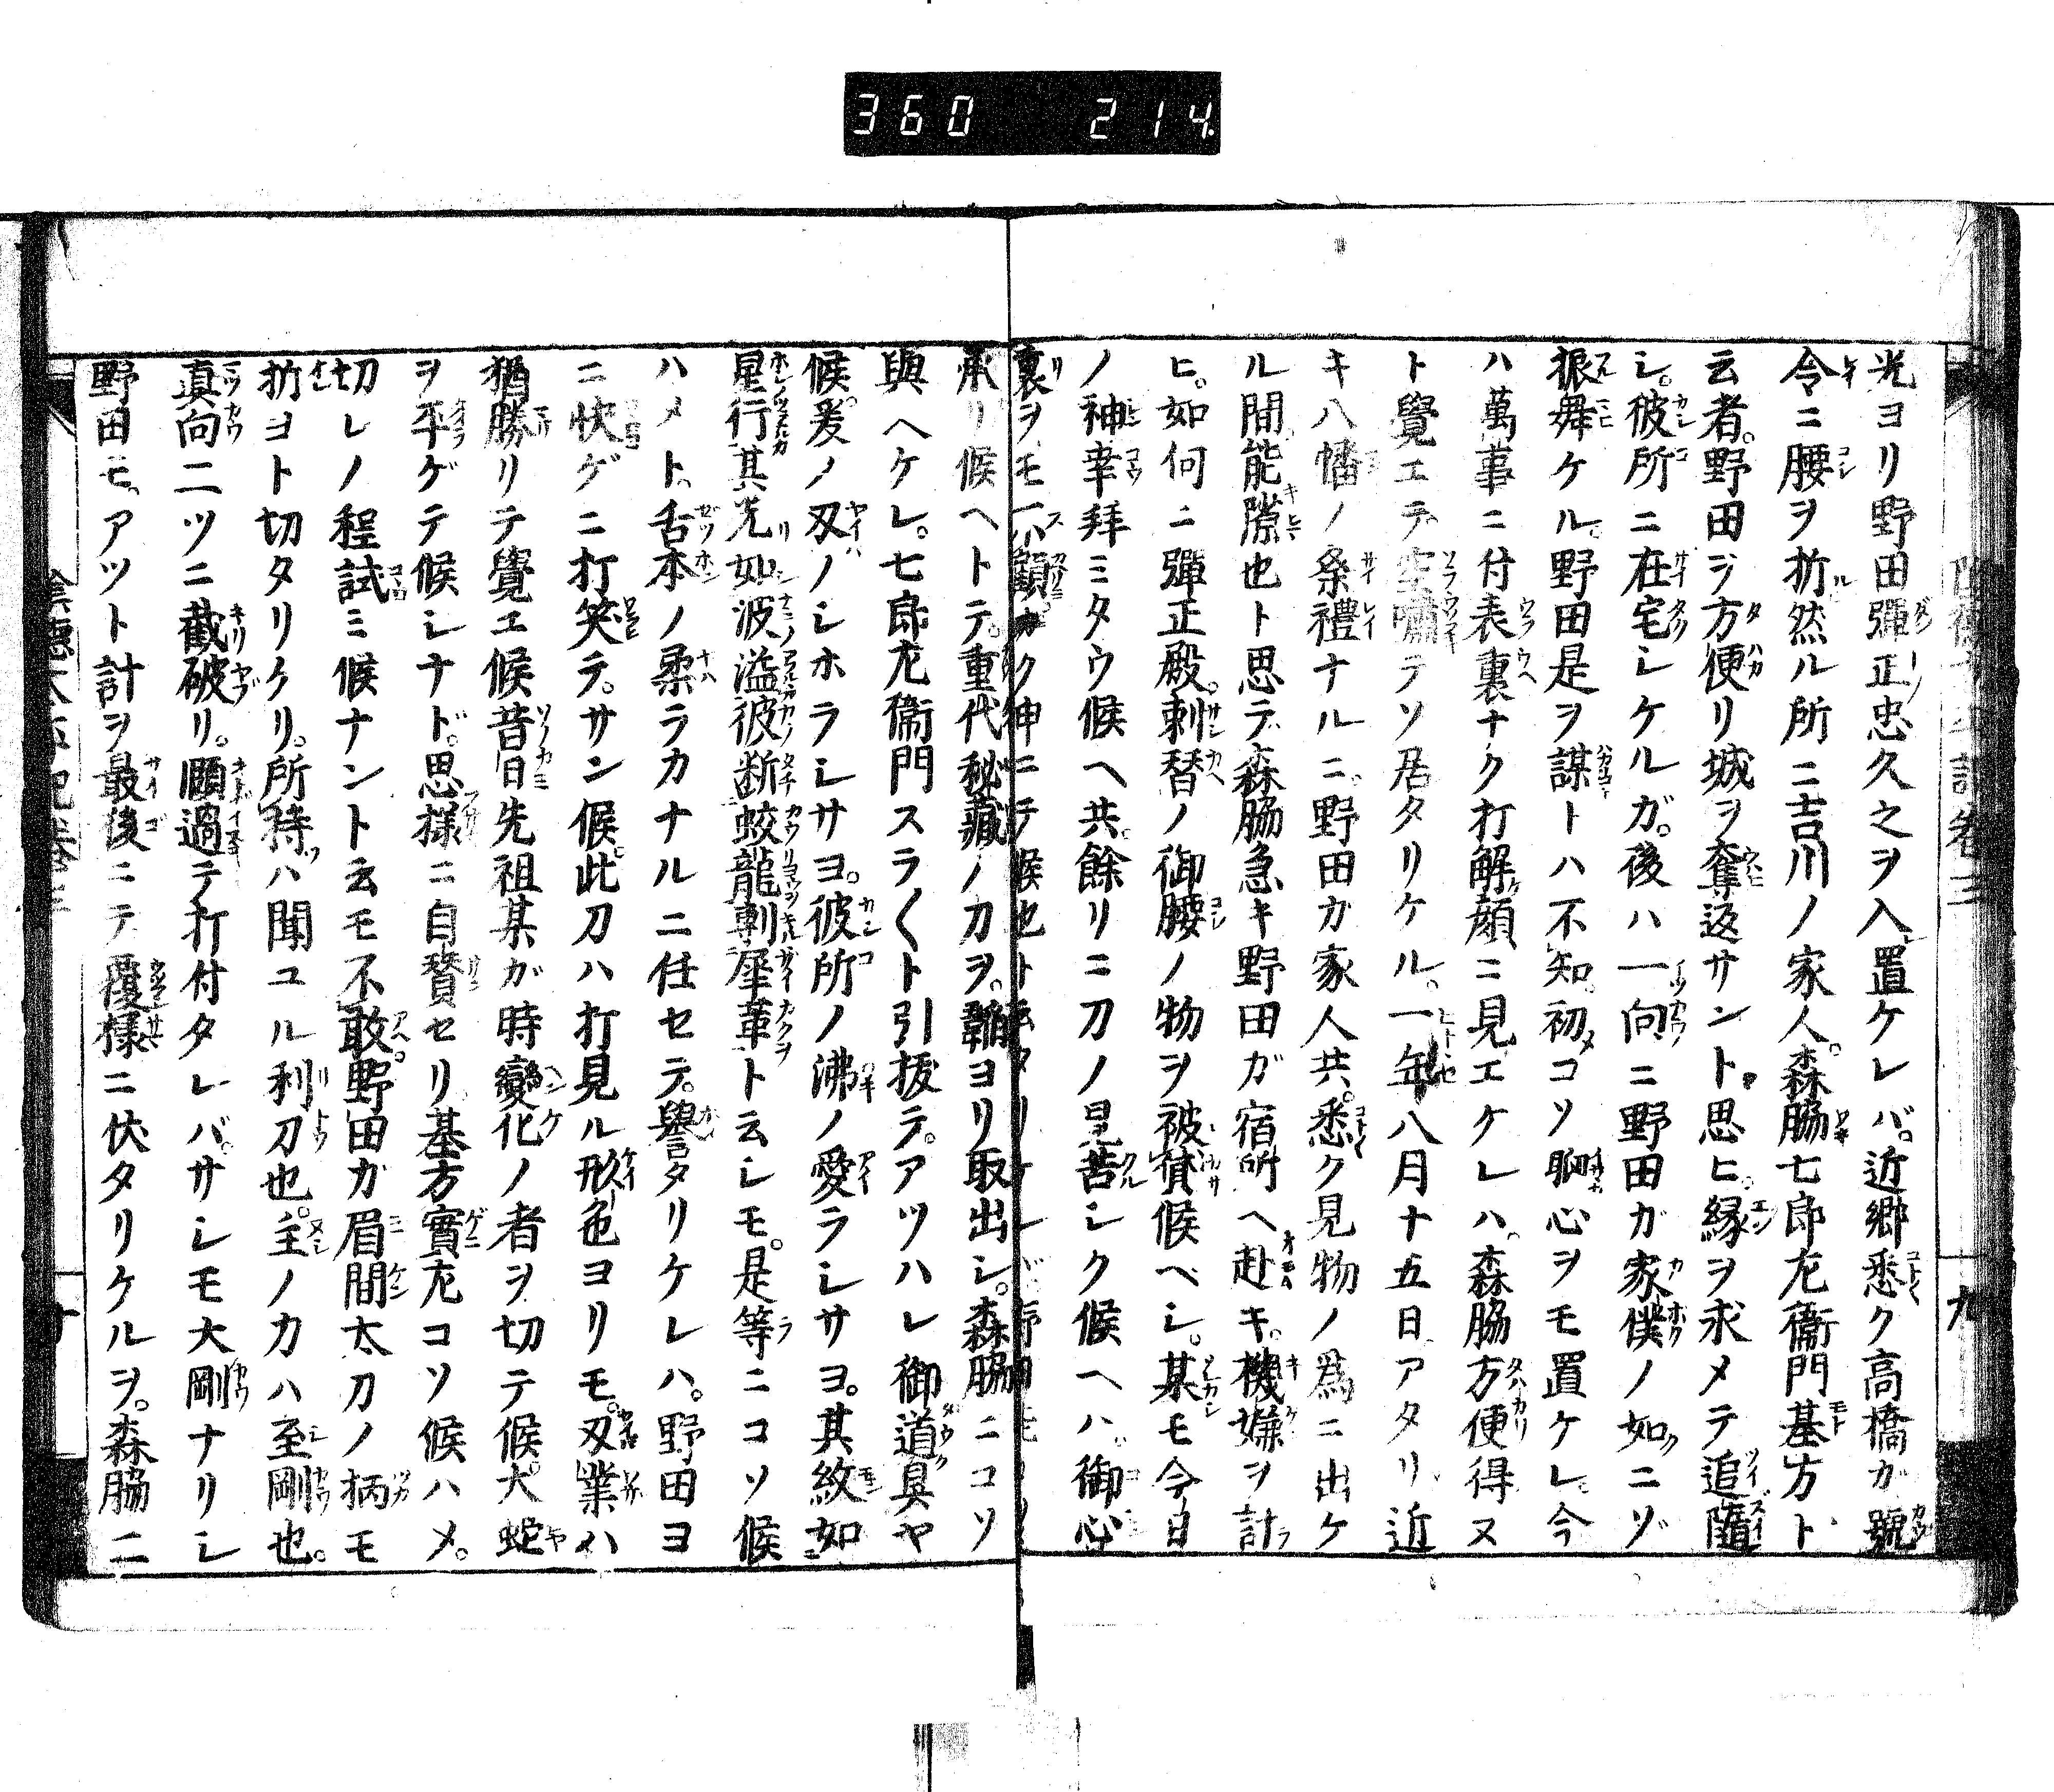 360 214
光ヨリ野田彈正忠久之ヲ入置ケレバ。近郷悉ク高橋ガ號
令ニ腰ヲ折ル然ル所ニ吉川ノ家人。森脇七郎左衞門基方ト
云者。野田ヲ方便リ城ヲ奪返サント思ヒ。縁ヲ求メテ追隨
シ。彼所ニ在宅シケルガ。後ハ一向ニ野田ガ家僕ノ如クニゾ
振舞ケル。野田是ヲ謀トハ不知。初メコソ聊心ヲモ置ケレ。今
ハ萬事ニ付表裏ナク打解顔ニ見エケレハ。森脇方便得ヌ
ト覺エテ。空嘯テソ居タリケル。一年八月十五日アタリ近
キ八幡ノ祭禮ナルニ。野田カ家人共。悉ク見物ノ爲ニ出ケ
ル間能隙也ト思テ。森脇急キ野田ガ宿所ヘ赴キ。機嫌ヲ計
ヒ。如何ニ彈正殿。刺替ノ御腰ノ物ヲ被貸候ベシ。某モ今日
ノ神幸拜ミタウ候ヘ共。餘リニ刀ノ見苦シク候ヘハ。御心
裏ヲモ不顧カク申ニテ候也ト云タリケレバ野田
承リ候ヘトテ。重代秘藏ノ刀ヲ。韜ヨリ取出シ。森脇ニコソ
與ヘケレ。七郎左衞門スラ〱ト引拔テ。アツハレ御道具ヤ
候。爰ノ刃ノシホラシサヨ。彼所ノ沸ノ愛ラシサヨ。其紋如
星行其光如波溢彼断蛟龍剸犀革ト云シモ。是等ニコソ候
ハメト。舌本ノ柔ラカナルニ任セテ。譽タリケレハ。野田ヨ
ニ快ゲニ打笑テ。サン候。此刀ハ打見ル形色ヨリモ。刃業ハ
猶勝リテ覺エ候昔日先祖某ガ時變化ノ者ヲ切テ候。大蛇
ヲ平ゲテ候シナド。思樣ニ自賛セリ。基方實左コソ候ハメ。
切レノ程試ミ候ナント云モ不敢。野田ガ眉間太刀ノ柄モ
折ヨト切タリケリ。所待ハ聞ユル利刀也。主ノ力ハ至剛也。
眞向二ツニ截破リ。頤過テ打付タレバ。サシモ大剛ナリシ
野田モ。アツト計ヲ最後ニテ覆樣ニ伏タリケルヲ。森脇二